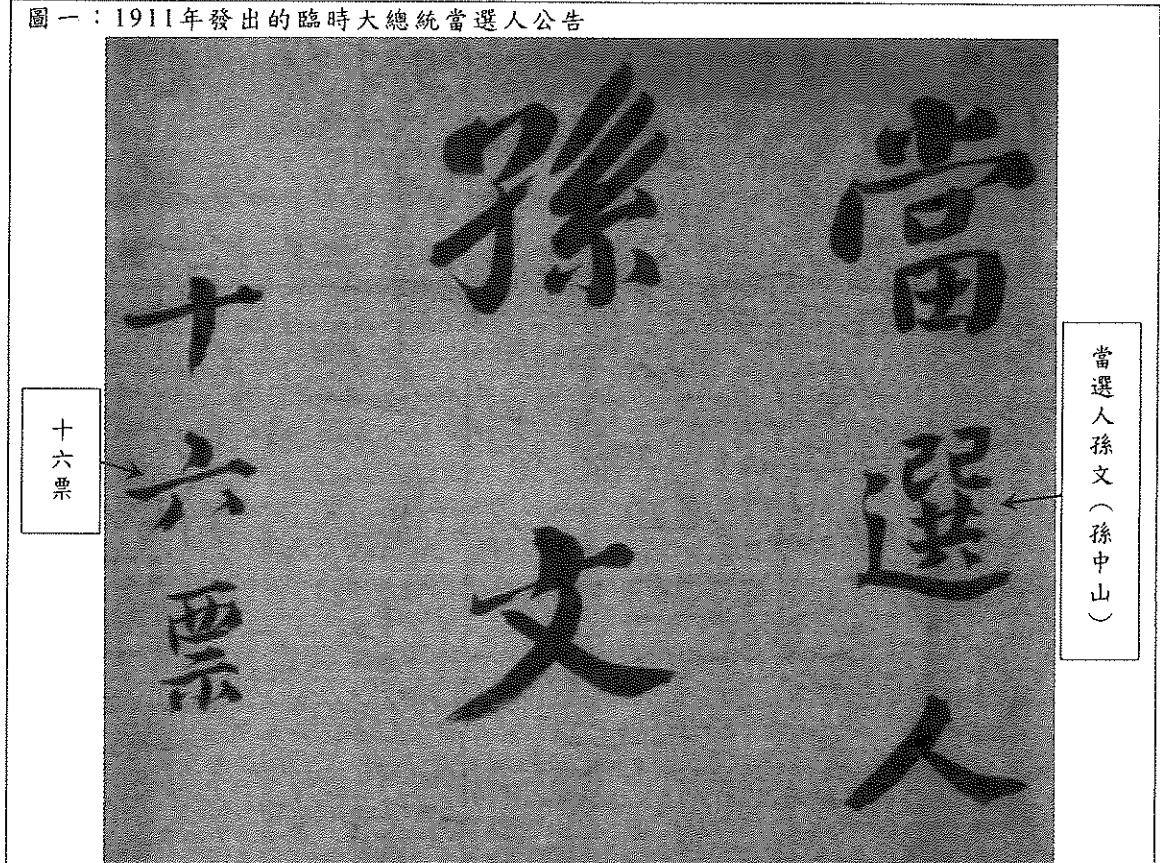 圖一：1911年發出的臨時大總統當選人公告
當選人
孫文
十六票
當選人孫文（孫中山）
十六票